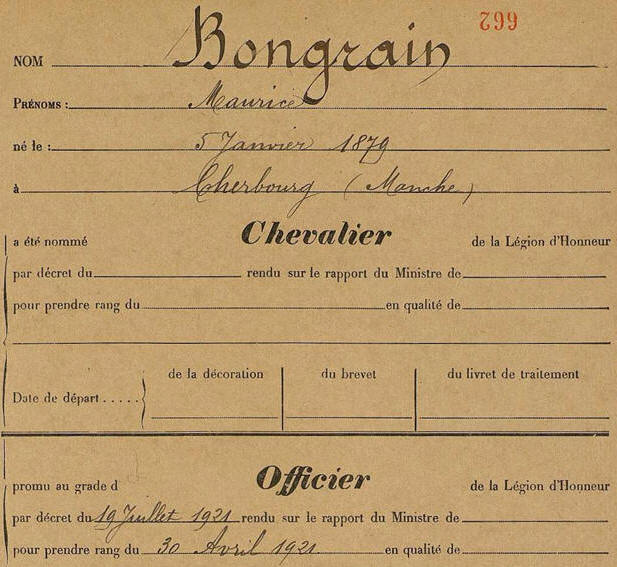 299
NOM Bongrain
PRÉNOMS : Maurice
né le : 5 Janvier 1879
à Cherbourg (Manche)
a été nommé Chevalier de la Légion d'Honneur
par décret du rendu sur le rapport du Ministre de
pour prendre rang du en qualité de
de la décoration du brevet du livret de traitement
Date de départ . . . . .
promu au grade d Officier de la Légion d'Honneur
par décret du 19 Juillet 1921 rendu sur le rapport du Ministre de
pour prendre rang du 30 Avril 1921 en qualité de